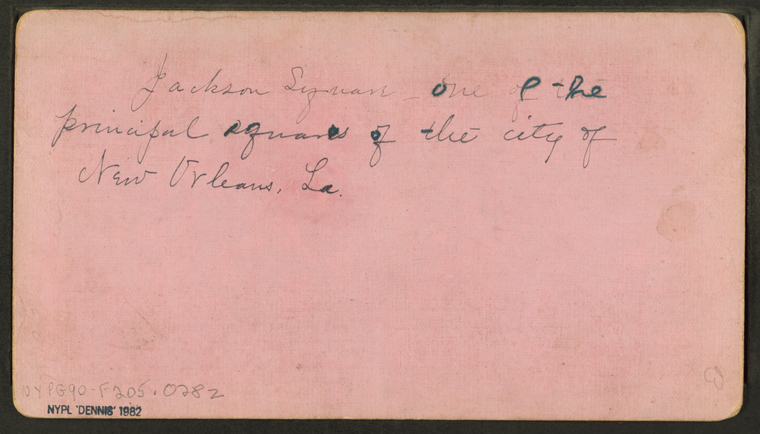 Jackson Square - one of the
principal squares of the city of
New Orleans, La.
NYPG90-F205.0282
NYPL 'DENNIS' 1982